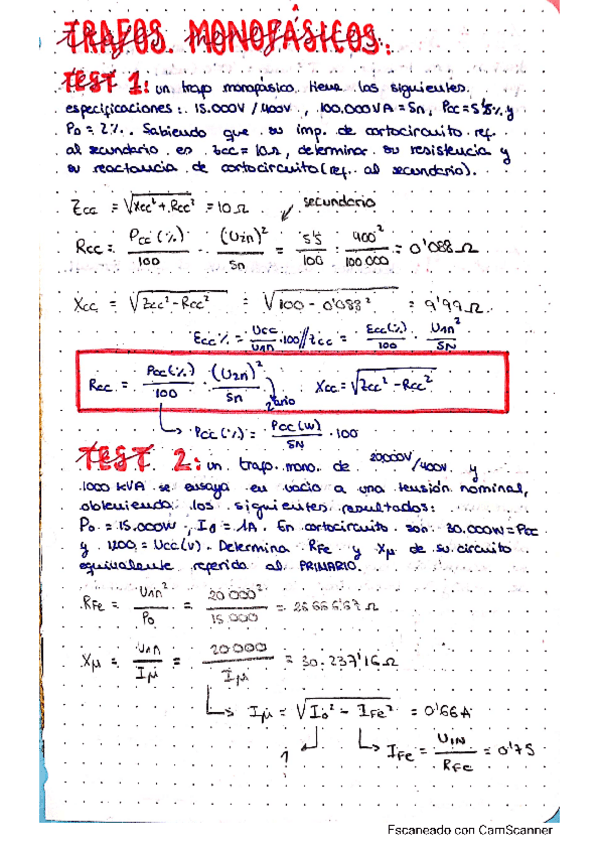 TRAFOS MONOFÁSICOS:
TEST 1: un trafo monofásico tiene las siguientes
especificaciones: 15.000V / 400V, 100.000VA = Sn, Pcc = 5'5% y
P0 = 2%. Sabiendo que su imp. de cortocircuito ref.
al secundario es Zcc = 10Ω, determinar su resistencia y
su reactancia de cortocircuito (ref. al secundario).
Zcc = √Xcc² + Rcc² = 10Ω secundario
Rcc = Pcc (%) / 100 · (U2n)² / Sn = 5'5 / 100 · 400² / 100.000 = 0'088Ω
Xcc = √Zcc² - Rcc² = √100 - 0'088² = 9'99Ω
Ecc% = Ucc / U1n · 100 // Zcc = Ecc(%) / 100 · U1n² / SN
Rcc = Pcc(%) / 100 · (U2n)² / Sn 2ario Xcc = √Zcc² - Rcc²
Pcc(%) = Pcc(W) / SN · 100
TEST 2: un trafo. mono. de 20.000V/400V y
1000 KVA se ensaya en vacío a una tensión nominal,
obteniendo los siguientes resultados:
P0 = 15.000W, I0 = 1A. En cortocircuito son 30.000W = Pcc
y 1200 = Ucc(V). Determina RFe y Xμ de su circuito
equivalente referida al PRIMARIO.
RFe = U1n² / P0 = 20.000² / 15.000 = 26666'67Ω
Xμ = U1n / Iμ = 20.000 / Iμ = 30.237'16Ω
Iμ = √I0² - IFe² = 0'66A
1 IFe = U1N / RFe = 0'75
Escaneado con CamScanner